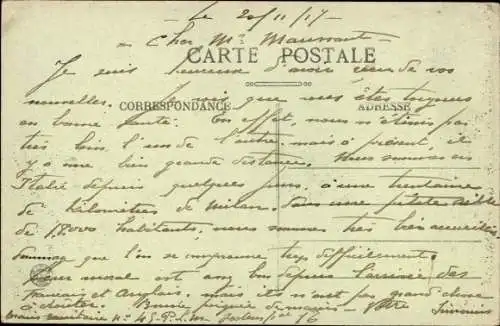 Le 20/11/17
Cher Mr Maussant
CARTE POSTALE
Je suis heureux d'avoir de vos
nouvelles. Je vois que vous êtes toujours
CORRESPONDANCE ADRESSE
en bonne santé. En effet, nous n'étions pas
très loin l'un de l'autre mais à présent, il
y a une bien grande distance. Nous sommes en
Italie depuis quelques jours, à une trentaine
de kilomètres de Milan. Dans une petite ville
de 18000 habitants, nous sommes très bien accueillis
dommage que l'on se comprenne très difficilement.
moral est bon depuis l'arrivée des
français et Anglais, mais ils n'ont pas grand chose
à . Bonne de
sanitaire